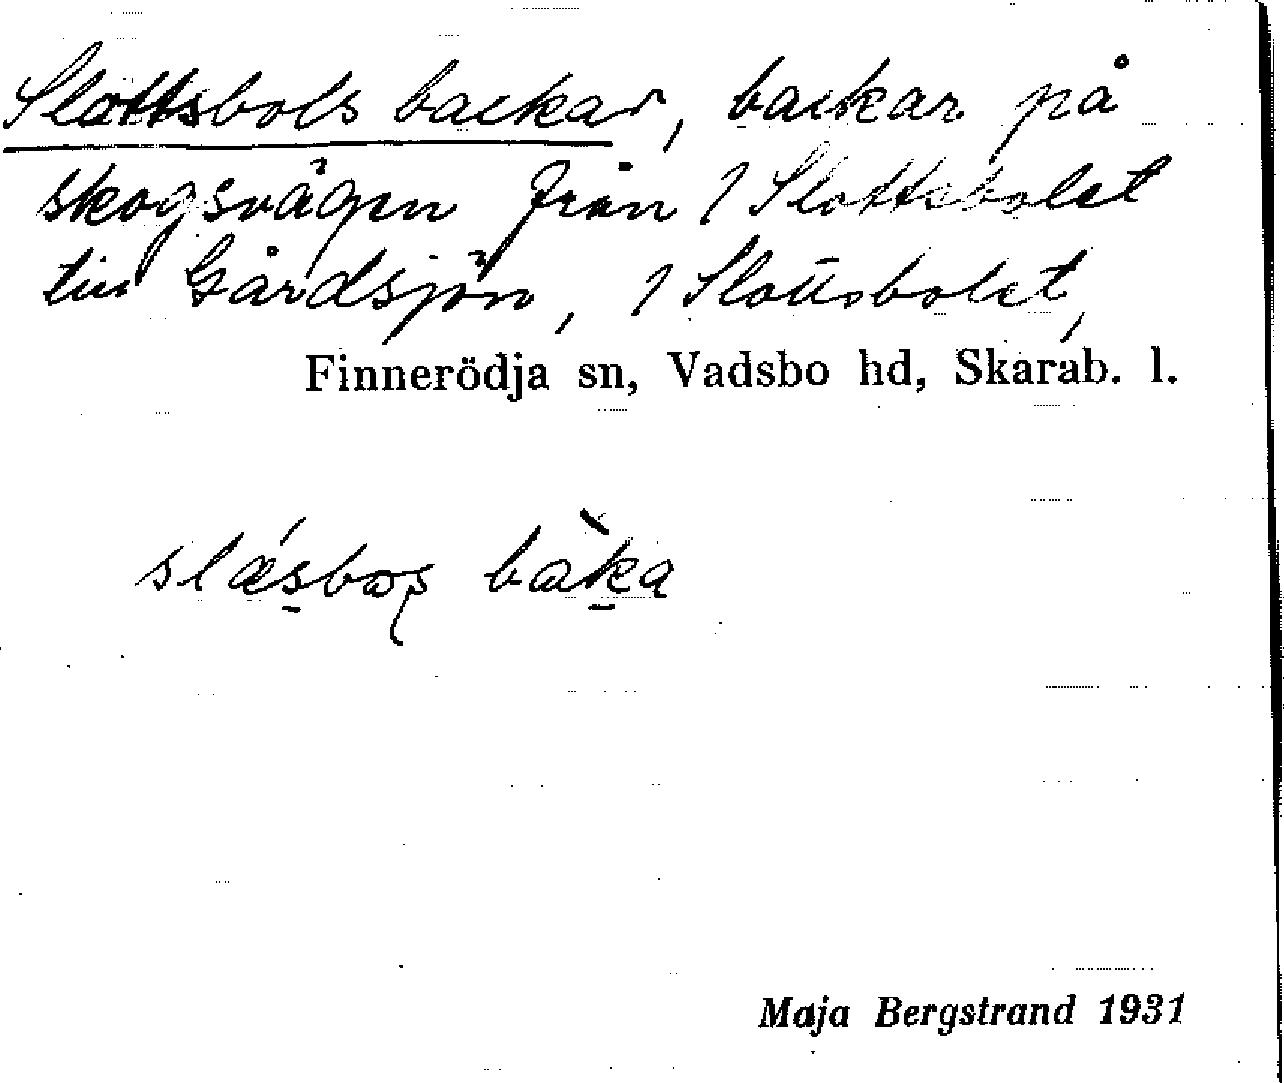 Slottsbols backar, backar på
skogsvägen från 1 Slottsbolet
till Gårdsjön, 1 Slottsbolet,
Finnerödja sn, Vadsbo hd, Skarab. l.
bàka
Maja Bergstrand 1931